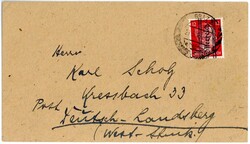 Herrn
Karl Scholz
Kressbach 33
Post Deutsch-Landsberg
(West-Stmk.)